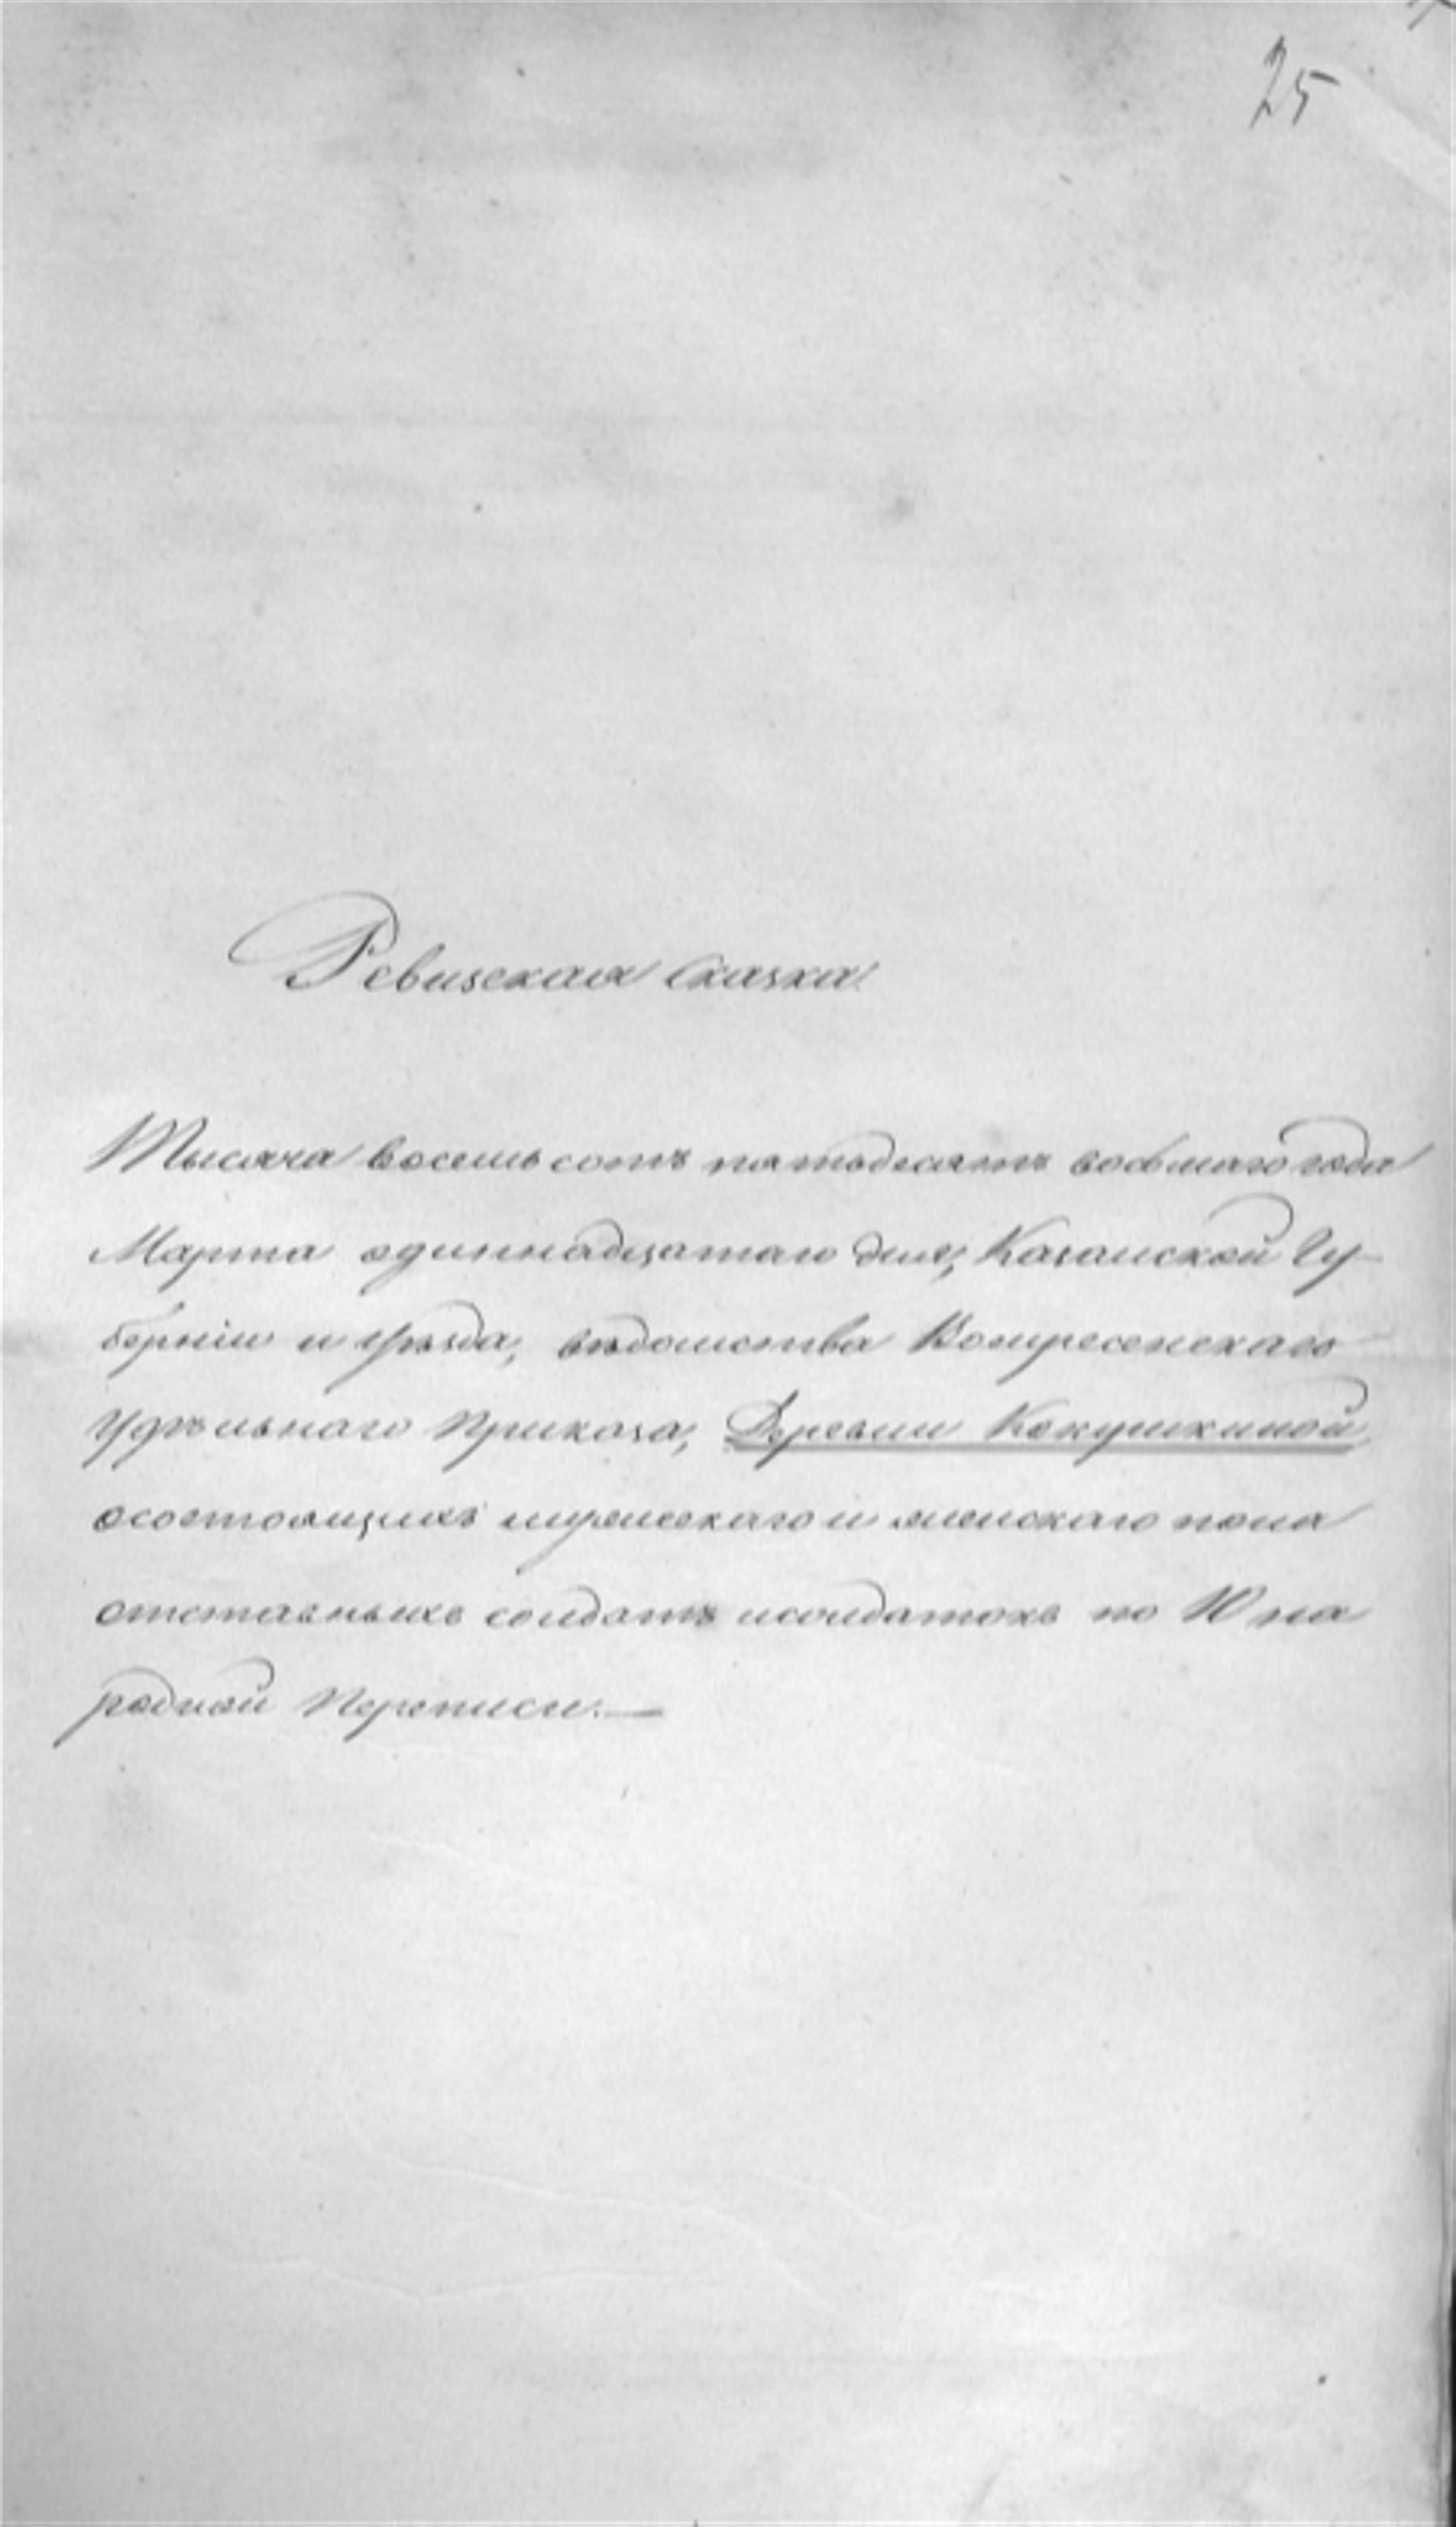 25
Ревизская Сказка
Тысяча восемь сотъ пятьдесятъ восьмаго года
Марта одиннадцатаго дня, Казанской Гу-
берніи и уѣзда, вѣдомства Воскресенскаго
Удѣльнаго Приказа, Деревни Кокушкиной
осостоящихъ мужескаго и женскаго пола
отставныхъ солдатъ исолдатокъ по 10 на
родной Переписи.—